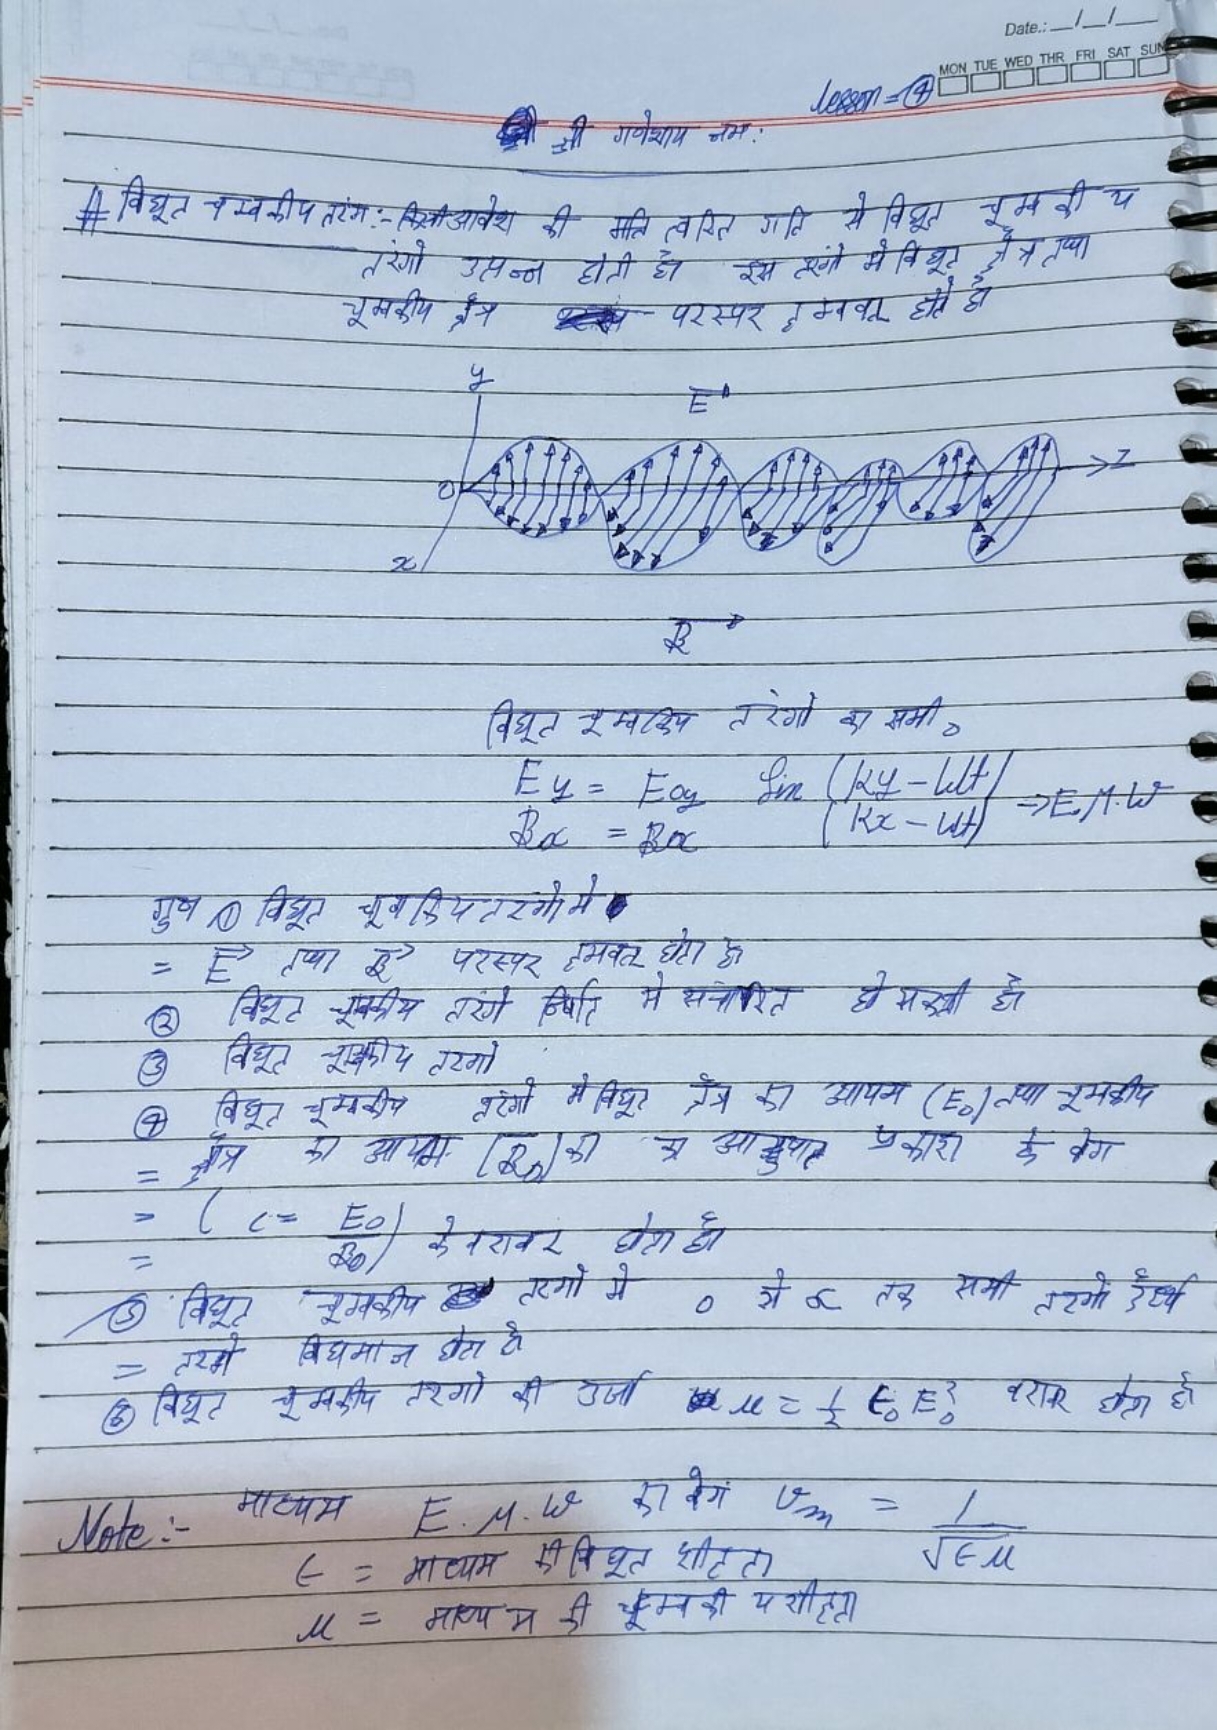 Date.: __/__/___
MON TUE WED THR FRI SAT SUN
Lesson = ④
श्री गणेशाय नमः
# विधूत चुम्बकीय तरंग:- किसी आवेश की गति त्वरित गति से विधूत चूम्बकीय
तरंगो उत्पन्न होती है। इस तरंगो मे विधूत क्षेत्र तथा
चूम्बकीय क्षेत्र परस्पर लम्बवत होते है।
y
E→
O
Z
x
B→
विधूत चूम्बकिय तरंगो का समी०
Ey = Eoy Sin (Ky - Wt)
Bx = Box (Kx - Wt) ⇒ E.M.W
गुण ① विधूत चूम्बकिय तरंगो मे
= E→ तथा B→ परस्पर लम्वत होता है।
② विधूत चूम्बकीय तरंगे निर्वात मे संचारित हो सकती है।
③ विधूत चूम्बकीय तरगो
④ विधूत चूम्बकीय तरंगो मे विधूत क्षेत्र का आयाम (E₀) तथा चूम्बकीय
= क्षेत्र का आयाम (B₀) का अनुपात प्रकाश के वेग
= ( c = E₀
= B₀) के वरावर होता है।
⑤ विधूत चूम्बकीय तरगो मे 0 से ∝ तक सभी तरगो दैर्ध्य
= तरगे विधमान होता है
⑥ विधूत चूम्बकीय तरगो की उर्जा u = 1/2 ϵ₀ E₀² वरावर होता है।
Note:- माध्यम E.M.W का वेग vm = 1
√ϵμ
ϵ = माध्यम की विधूत शीलता
μ = माध्यम की चूम्बकीयशीलता